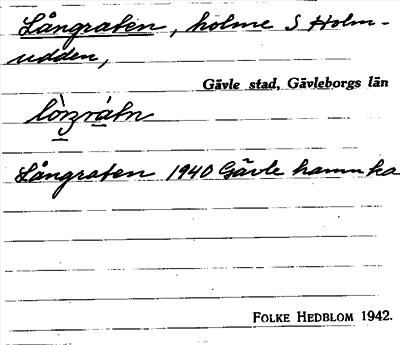 Långraten, holme S Holm-
udden,
Gävle stad, Gävleborgs län
Långraten 1940 Gävle hamn ka
FOLKE HEDBLOM 1942.